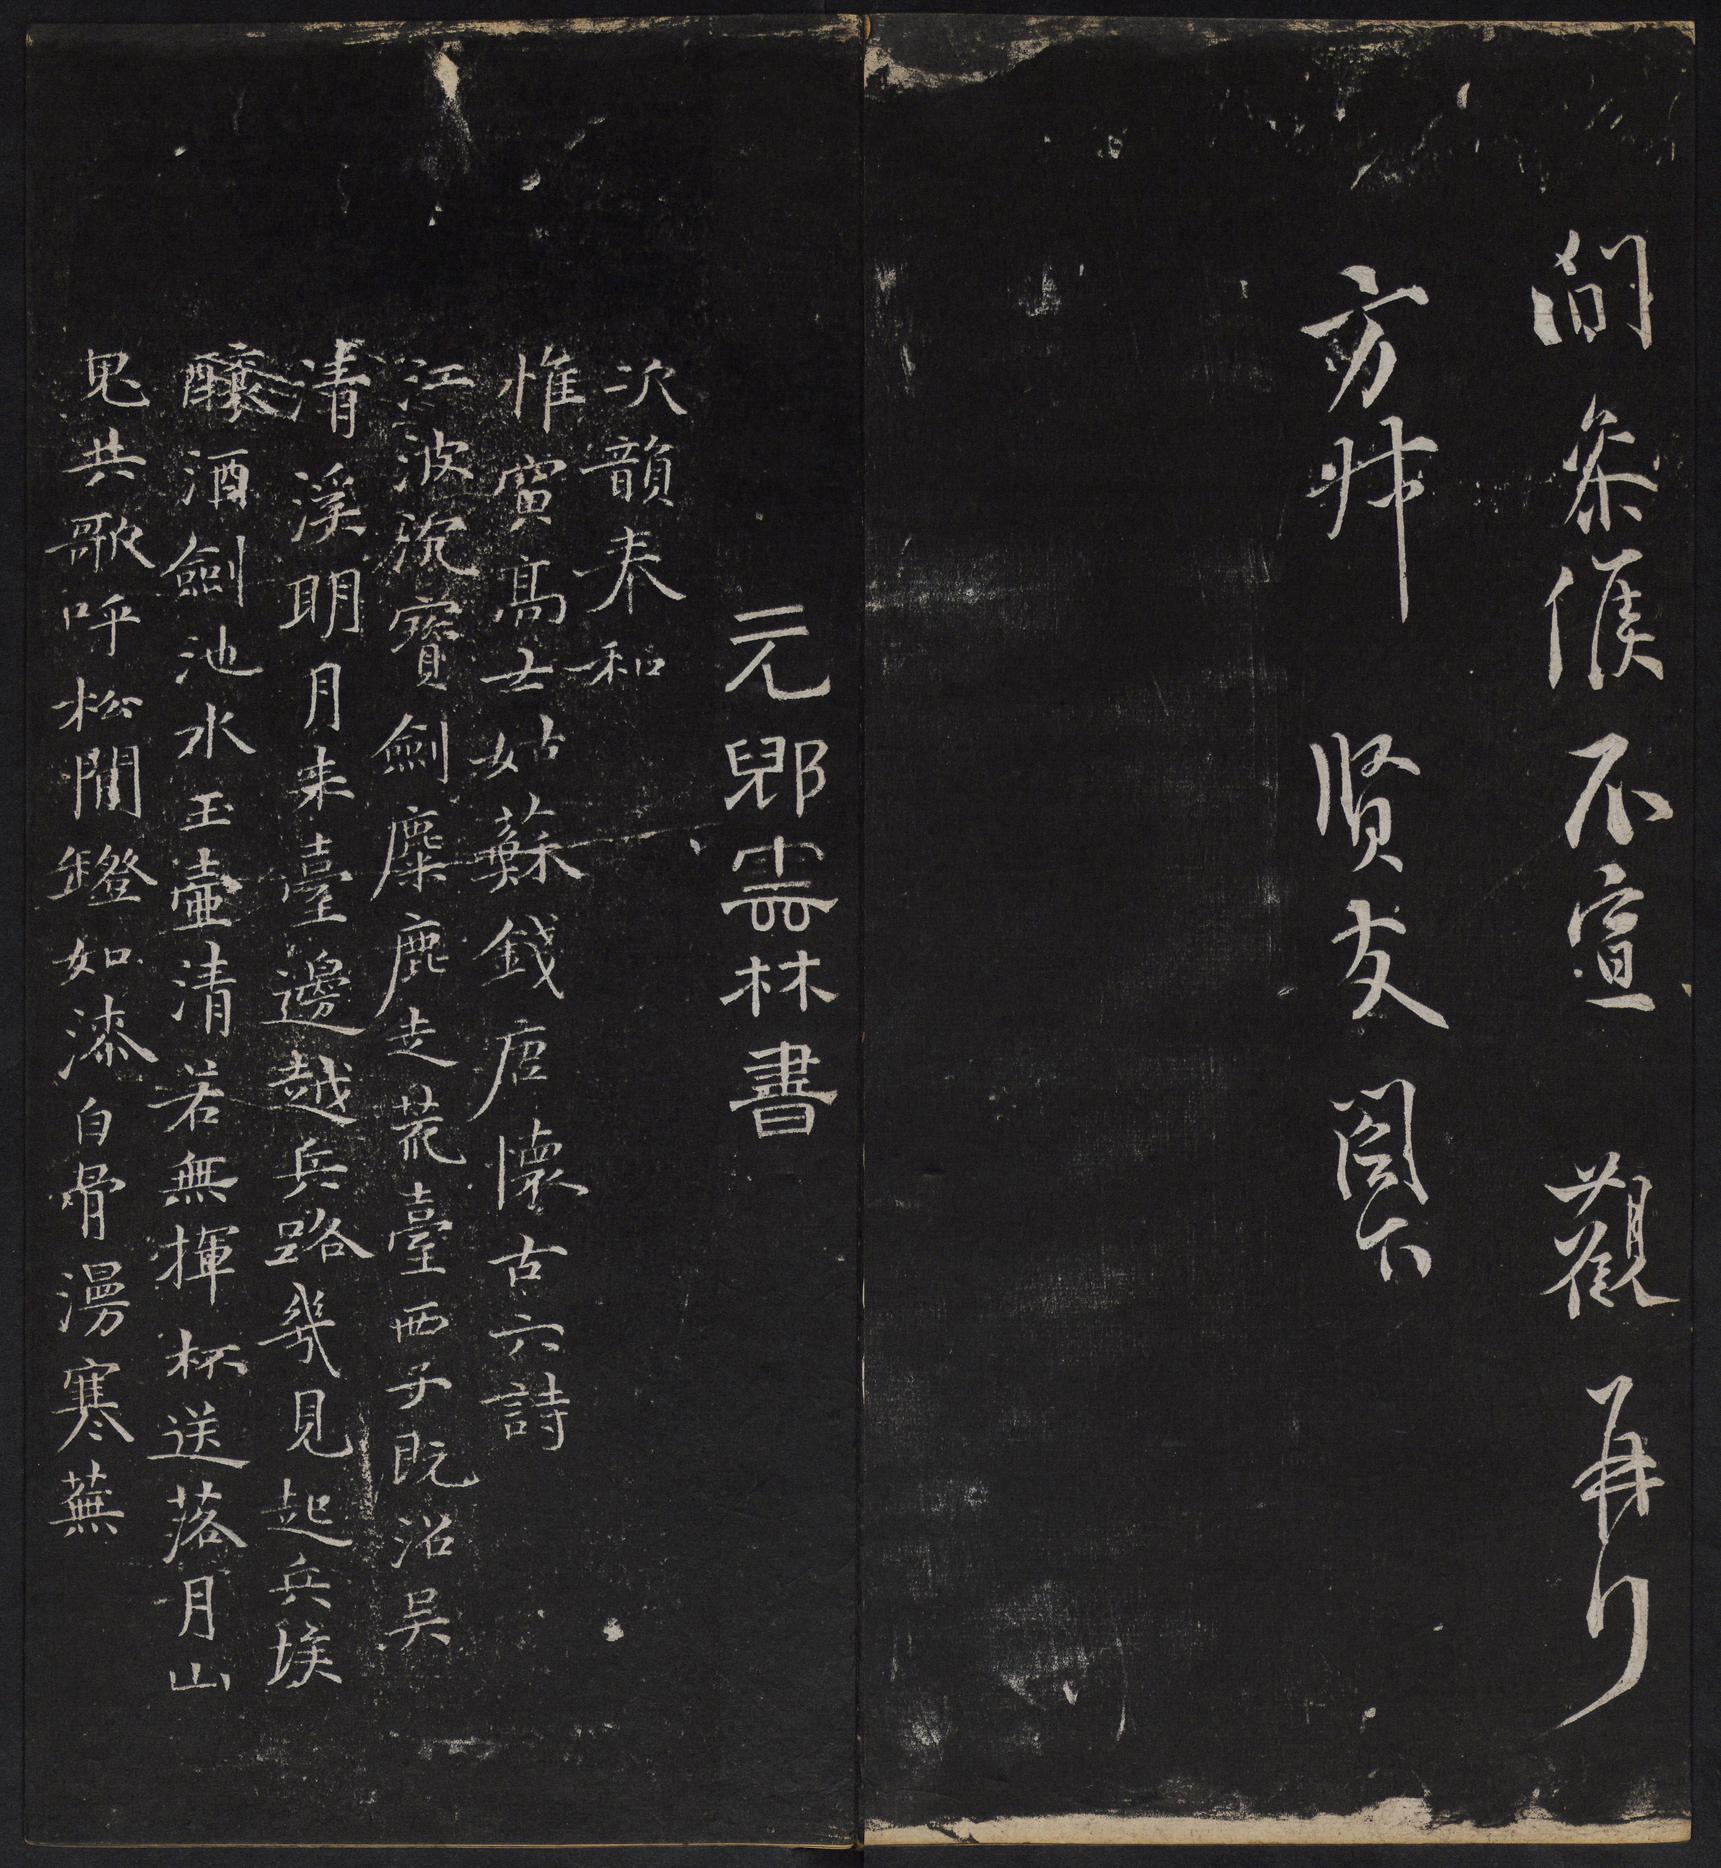 间參候不宣 觀再拜
方叔 賢友閣下
元郳雲林書
次韻奉和
惟寅高士姑蘇錢唐懷古六詩
江波沉寶劍麋鹿走荒臺西子既沼吳
清溪明月来臺邊越兵路幾見起兵埃
釀酒劍池水玉壺清若無揮杯送落月山
鬼共歌呼松間鐙如漆白骨漫寒蕪